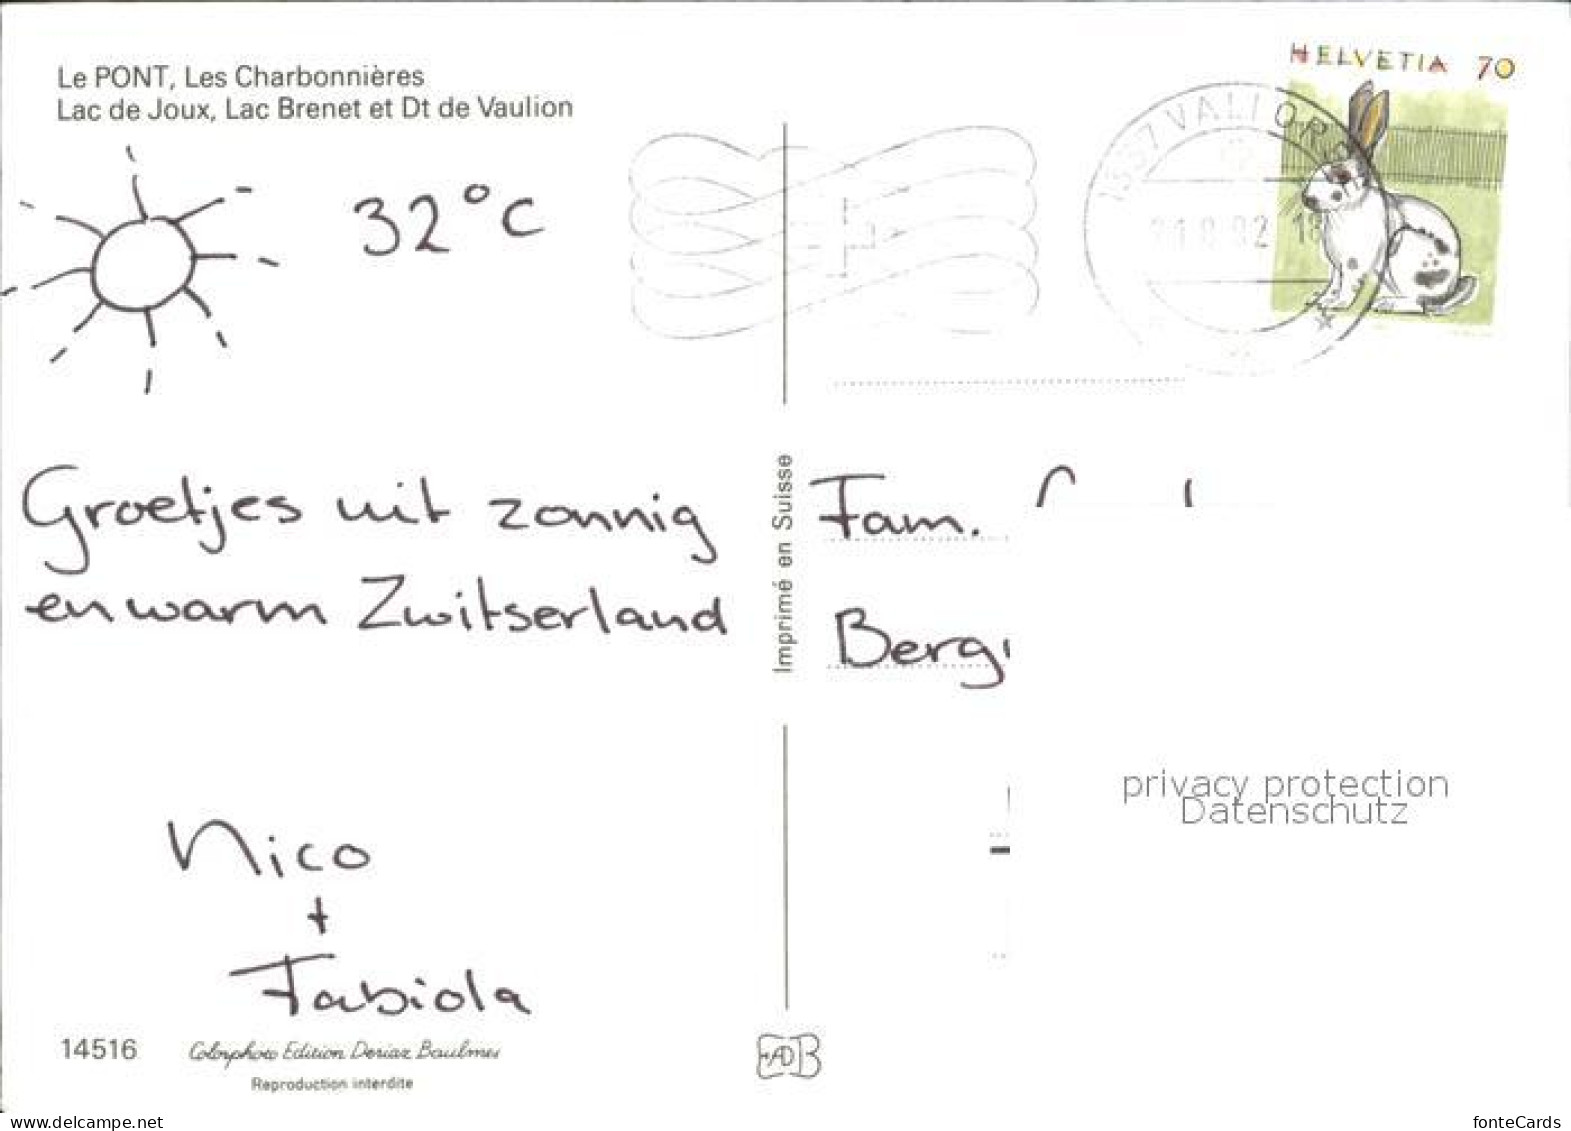 Le PONT, Les Charbonnières
Lac de Joux, Lac Brenet et Dt de Vaulion
HELVETIA 70
32°C
Groetjes uit zonnig
en warm Zwitserland
Imprimé en Suisse
Fam.
Nico
+
Fabiola
privacy protection
Datenschutz
14516
Colorphoto Edition Deriaz Baulmes
Reproduction interdite
www.delcampe.net
fonteCards